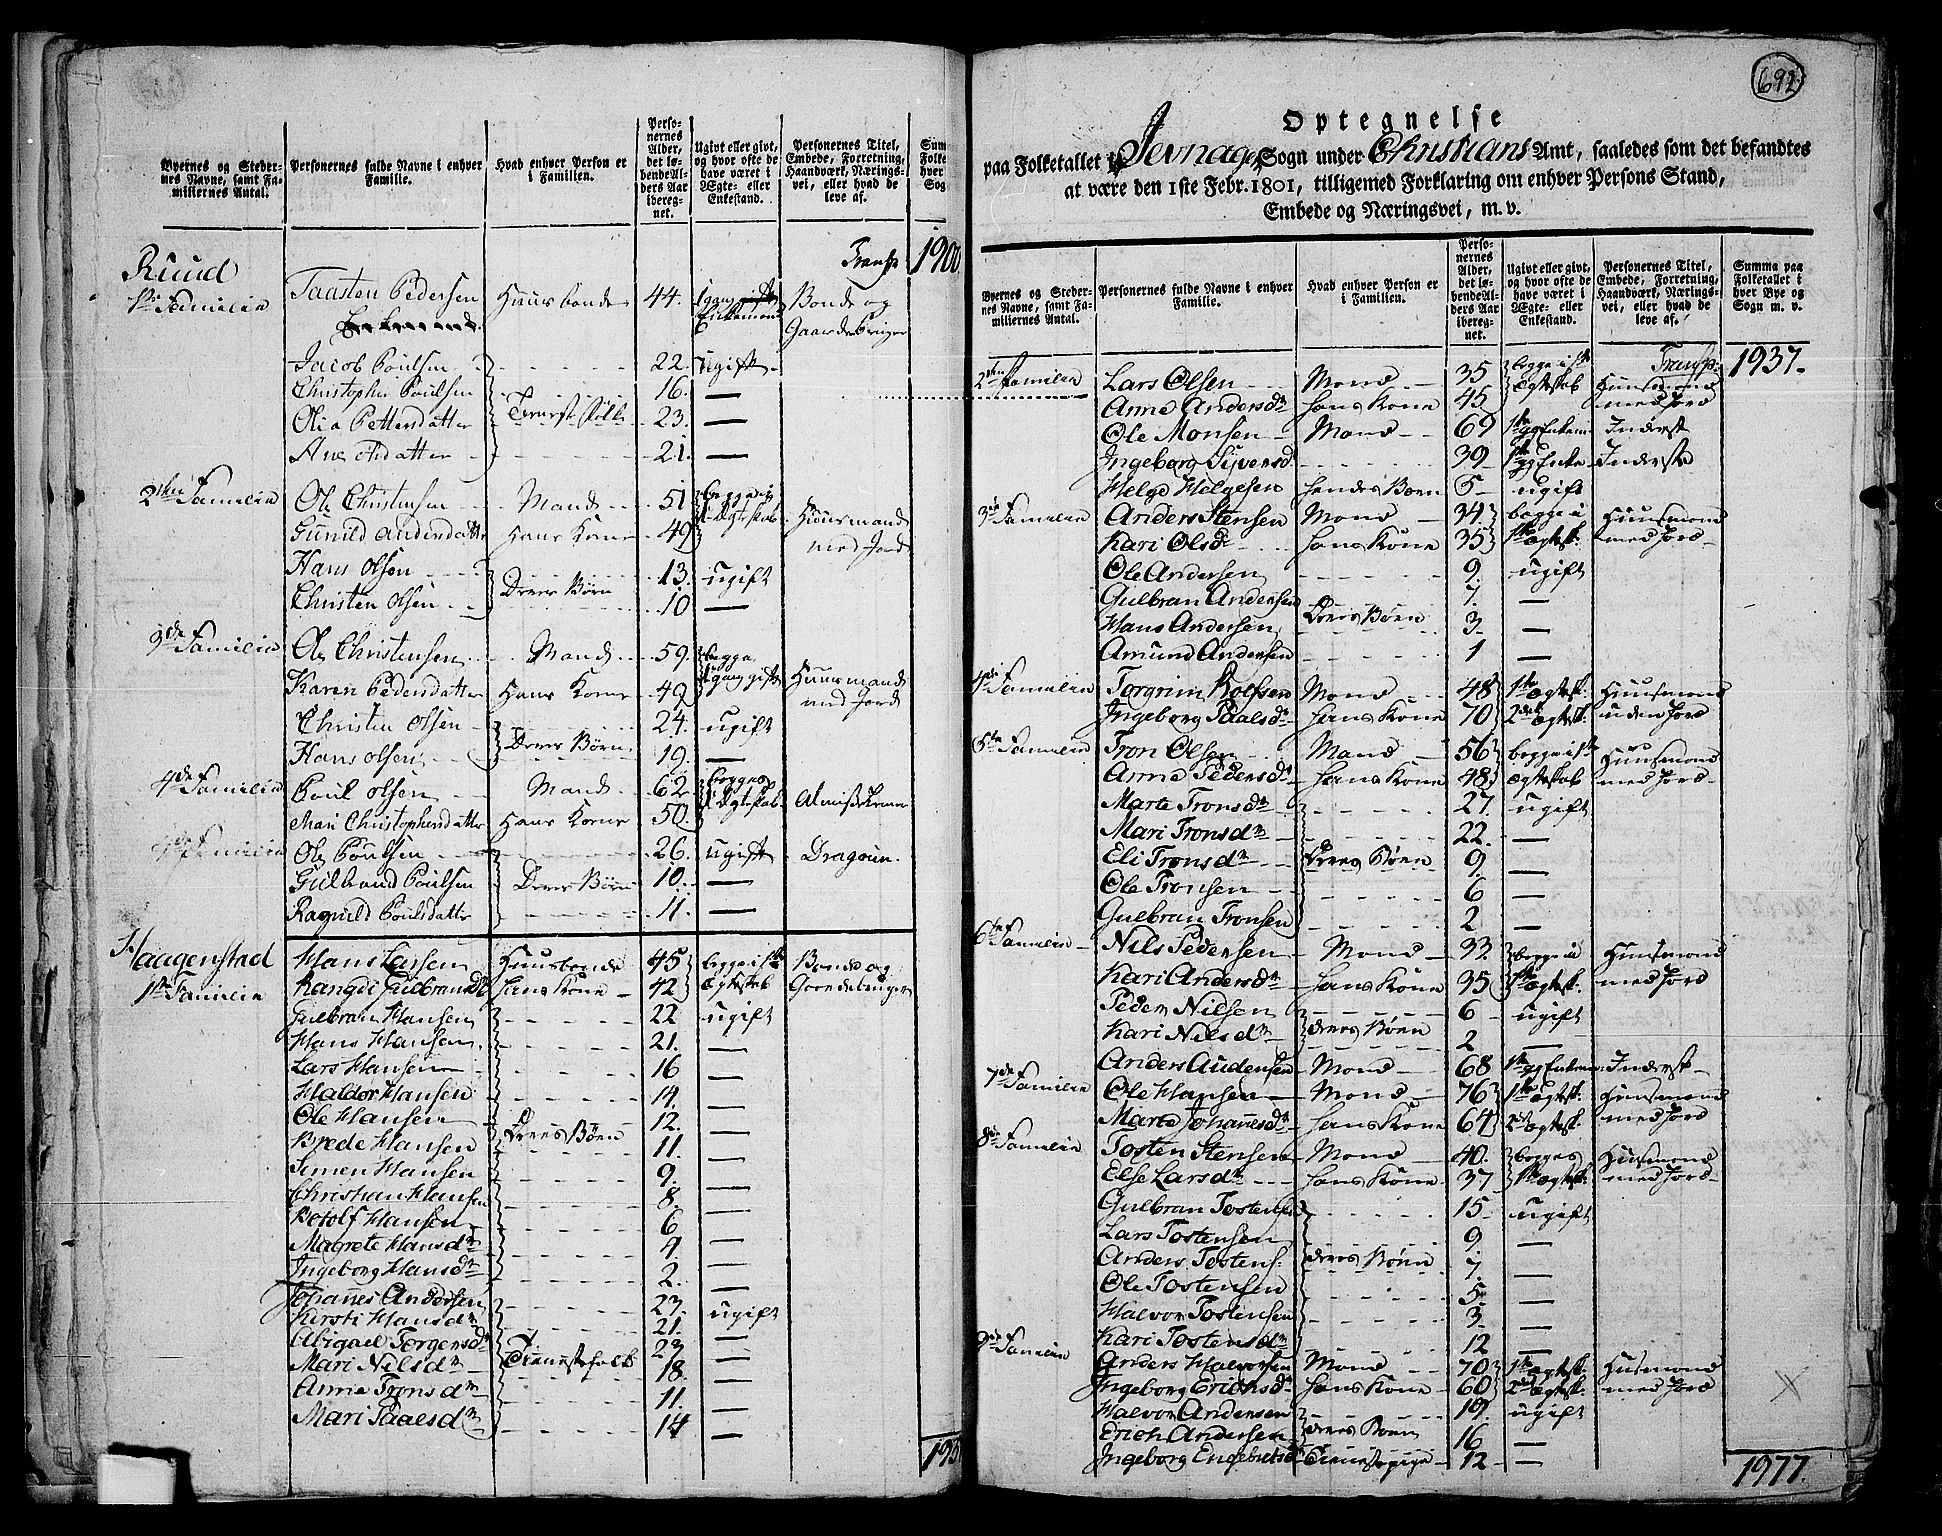 Byernes og Stedernes Navne, samt Familiernes Antal.
Personernes fulde Navne i enhver Familie.
Hvad enhver Person er i Familien.
Personernes Alder, det løbende Alders Aar iberegnet.
Ugivt eller givt, og hvor ofte de have været i Ægte- eller Enkestand.
Personernes Titel, Embede, Forretning, Haandværk, Næringsvei, eller hvad de leve af.
Transp 1900
Ruud
1ste Familie Taasten Pedersen Huusbonde 44. Enkemand Bonde og
Gaardebruger
Jacob Poulsen 22. ugift
Christopher Poulsen 16. —
Olia Pettersdatter Tienestefolk 23. —
Ane Olsdatter 21. —
2den Familie Ole Christensen Mand 51 begge i
Gunild Andersdatter Hans Kone 49 Ægteskab Huusmand
med Jord
Hans Olsen 13. ugift
Christen Olsen Deres Børn 10 —
3de Familie Ole Christensen Mand 59. begge
Karen Pedersdatter Hans Kone 49 1 gang gift Huusmand
med Jord
Christen Olsen 24. ugift
Hans Olsen Deres Børn 19. —
4de Familie Poul Olsen Mand 62. begge
Mari Christophersdatter Hans Kone 50. i Ægteskab Almisselemmer
Ole Poulsen 26. ugift Dragoun.
Gulbrand Poulsen Deres Børn 10. —
Ragnild Poulsdatter 11. —
Haagenstad Hans Larsen Huusbonde 45 begge i 1ste Bonde og
1ste Familie Rangdi Gulbrandsdr Hans Kone 42 Ægteskab Gaardebruger
Gulbran Hansen 22 ugift
Hans Hansen 21. —
Lars Hansen 16 —
Haldor Hansen 14. —
Ole Hansen 12. —
Brede Hansen Deres Børn 11. —
Simen Hansen 9. —
Christian Hansen 8. —
Botolf Hansen 6 —
Magrete Hansdr 4. —
Ingeborg Hansdr 2. —
Johannes Andersen 23. ugift
Kirsti Hansdr 21. —
Abigael Torgersdr 23 —
Mari Nilsdr Tienestefolk 18. —
Anne Tronsdr 11. —
Mari Paalsdr 14 —
692
Optegnelse
paa Folketallet i Jevnager Sogn under Christians Amt, saaledes som det befandtes
at være den 1ste Febr. 1801, tilligemed Forklaring om enhver Persons Stand,
Embede og Næringsvei, m. v.
Byernes og Stedernes Navne, samt Familiernes Antal.
Personernes fulde Navne i enhver Familie.
Hvad enhver Person er i Familien.
Personernes Alder, det løbende Alders Aar iberegnet.
Ugivt eller givt, og hvor ofte de have været i Ægte- eller Enkestand.
Personernes Titel, Embede, Forretning, Haandværk, Næringsvei, eller hvad de leve af.
Summa paa Folketallet i hver Bye og Sogn m. v.
Transp: 1937.
2den Familie Lars Olsen Mand 35 begge i 1ste Huusmand
Anne Andersdr Hans Kone 45 Ægteskab med Jord
Ole Monsen Mand 69 1ste gg Enkem. Inderst
Ingeborg Siversd 39 1ste gg Enke Inderste
Helge Helgesen Hendes Børn 5 ugift
3de Familie Anders Stensen Mand 34. begge i Huusmand
Kari Olsdr Hans Kone 35 1ste Ægtesk: med Jord
Ole Andersen 9. ugift
Gulbran Andersen 7. —
Hans Andersen Deres Børn 3 —
Amund Andersen 1 —
4de Familie Torgrim Rolfsen Mand 48 1ste Ægtesk: Huusmand
Ingeborg Paalsdr Hans Kone 70 2det Ægtesk: uden Jord
5te Familie Tron Olsen Mand 56 begge i 1ste Huusmand
Anne Pedersdr Hans Kone 48 Ægteskab med Jord
Marte Tronsdr 27. ugift
Mari Tronsdr 22. —
Eli Tronsdr Deres Børn 9 —
Ole Tronsen 6 —
Gulbran Tronsen 2 —
6te Familie Nils Pedersen Mand 33. begge i Huusmand
Kari Andersdr Hans Kone 35 1ste Ægtesk: med Jord
Peder Nilsen 6 ugift
Kari Nilsdr Deres Børn 2 —
Anders Audensen Mand 68 1ste gg Enkem. Inderst
7de Familie Ole Hansen Mand 76 1ste Ægtesk: Huusmand
Marte Johannesdr Hans Kone 64 2det Ægtesk. med Jord
8de Familie Tosten Stensen Mand 40. begges Husmand
Else Larsdr Hans Kone 37 1ste Ægtesk: med Jord
Gulbran Tostensen 15 ugift
Lars Tostensen 9 —
Anders Tostens: Deres Børn 7 —
Ole Tostensen 5 —
Halvor Tostensen 3 —
Kari Tostensdr 12 —
9de Familie Anders Halvorsen Mand 70 1ste Ægtesk: Husmand
Ingeborg Erichsdr Hans Kone 60 2det Ægtesk: med Jord
Halvor Andersen 19. ugift
Erich Andersen Deres Børn 16 —
Ingeborg Engebretsd Tienestepige 12 —
1977.